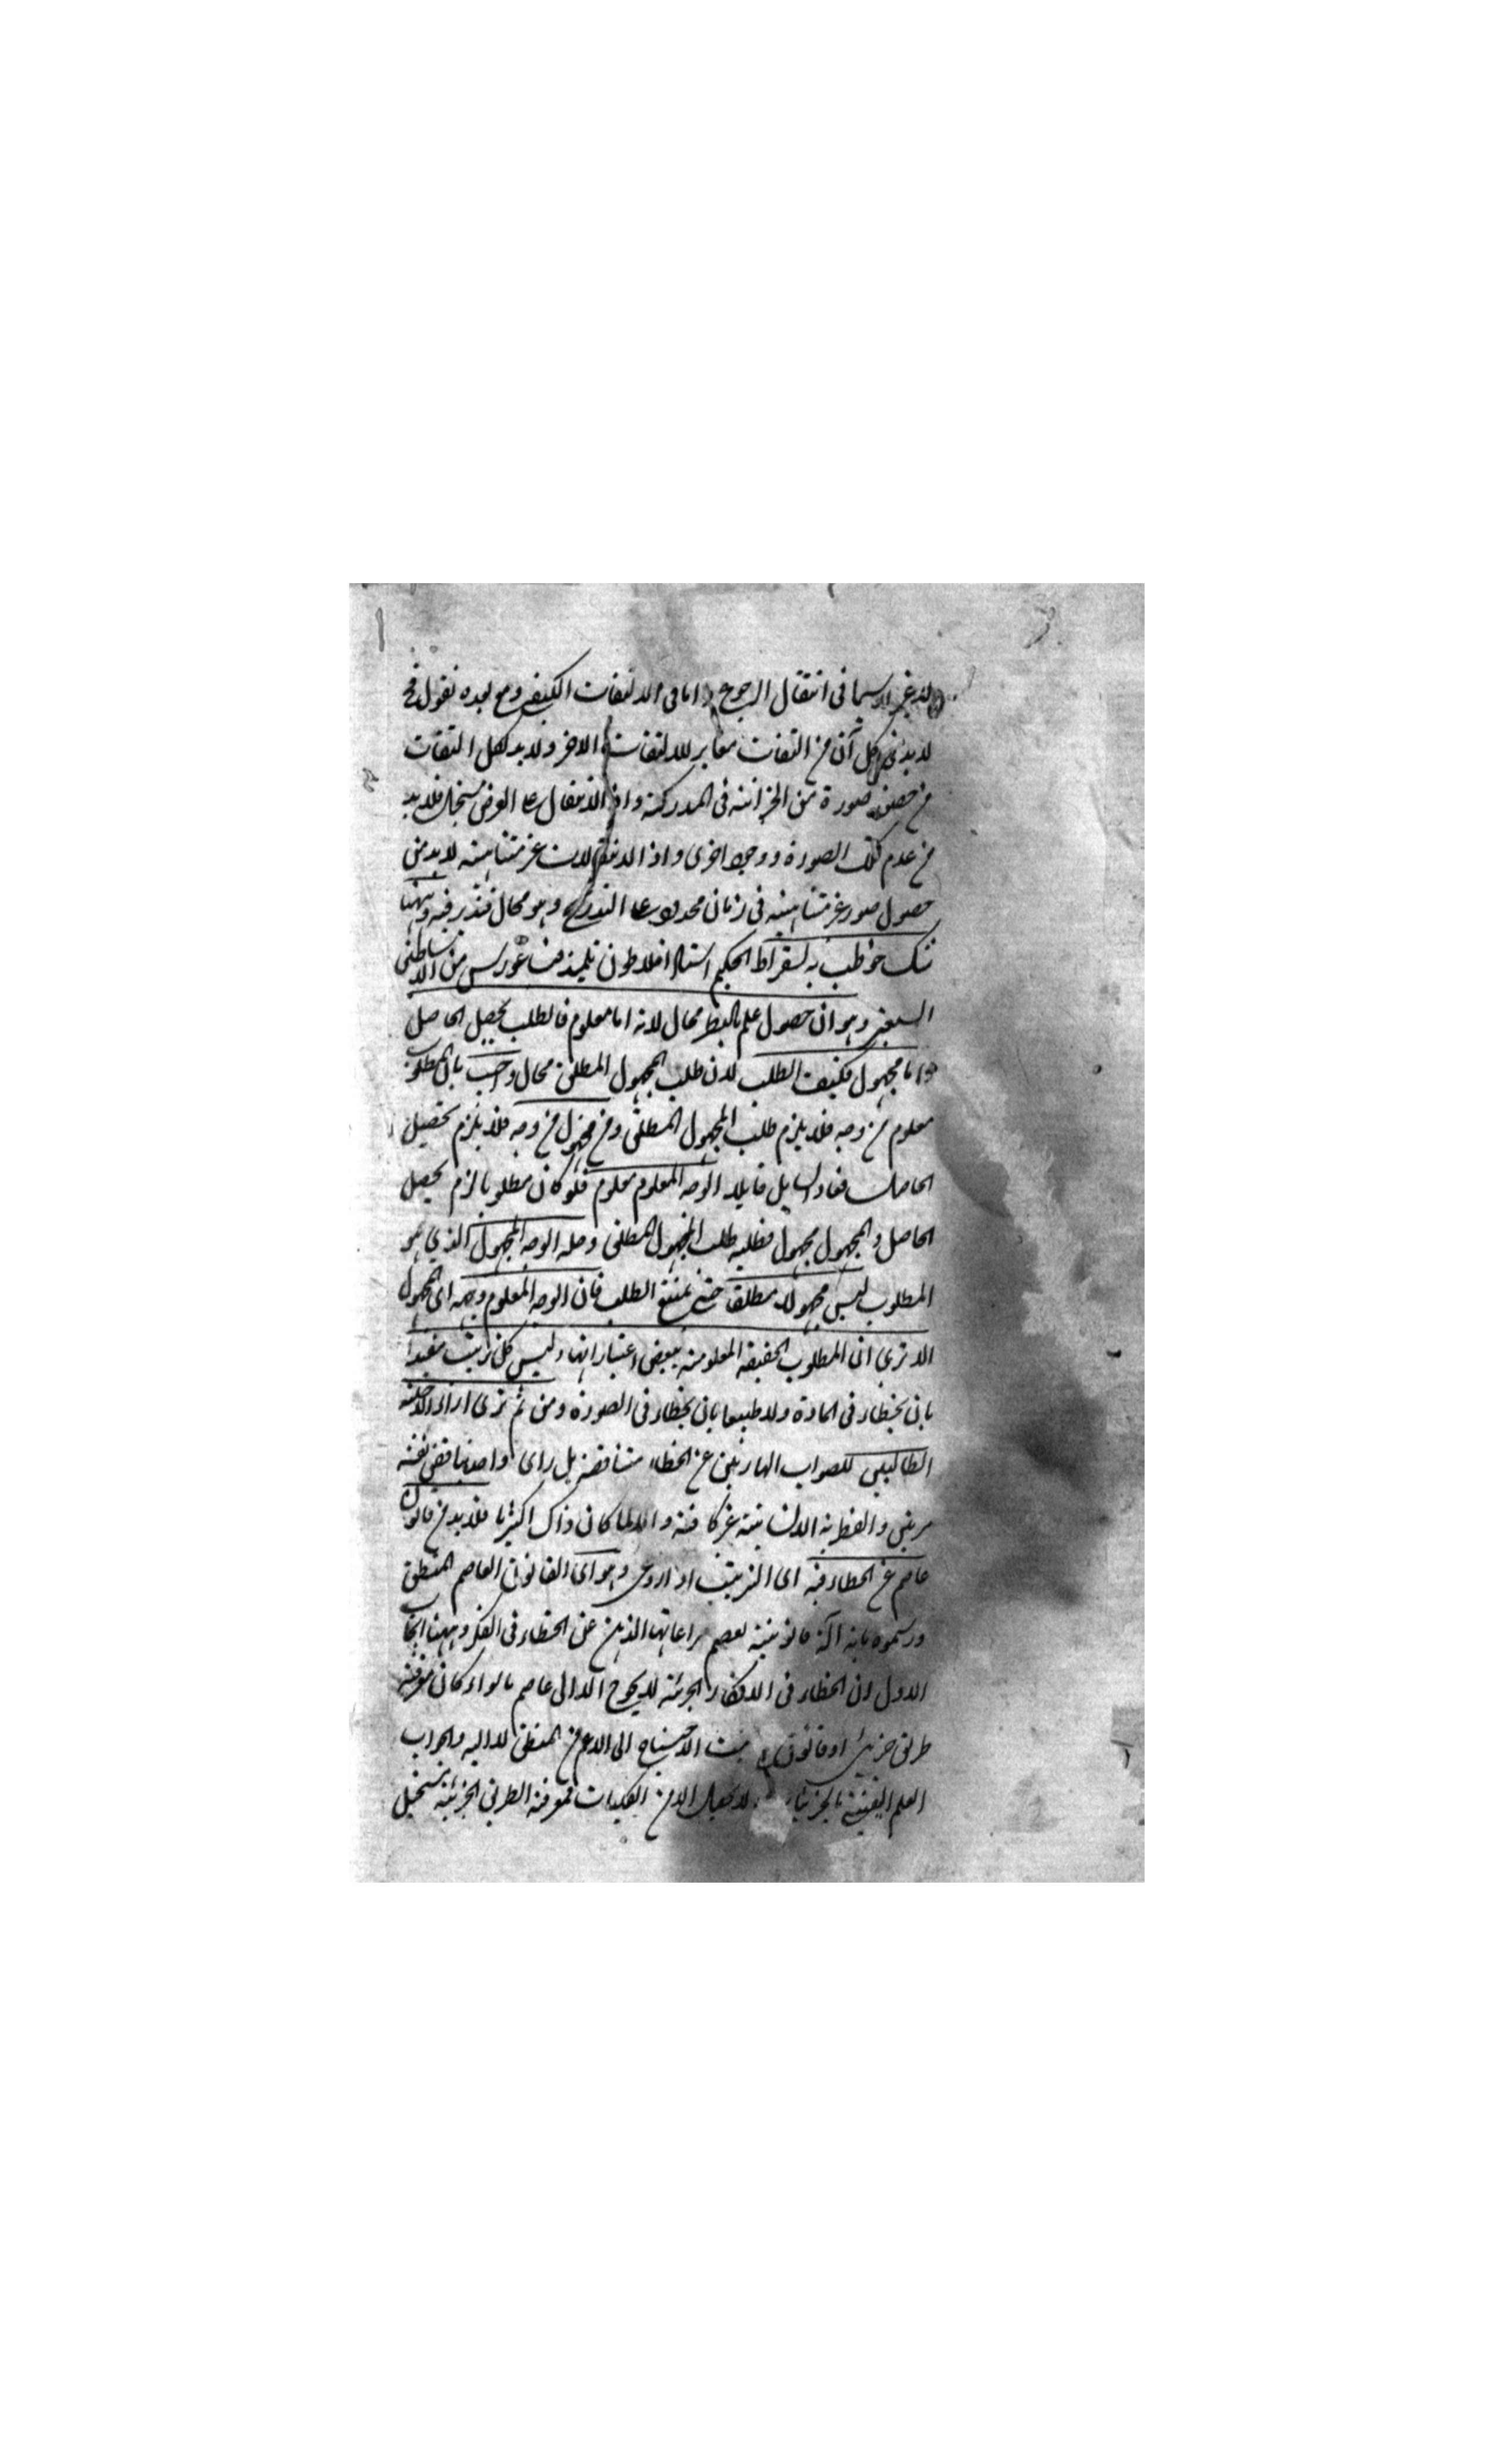 في انتقال الرجوع واما في الالتفات الكيفي ومع لعده نقول فح
لابد في كل آن من التفات مغاير للالتفات الاخر ولابد لكل التفات
من حصول صورة من الخزانة في المدركة واذ الانتقال على العرض مستحيل فلابد
من عدم تلك الصورة ووجود اخرى واذ الانتقالات غير متناهية لابد من
حصول صور غير متناهية في زمان محدود على التدريج وهو محال فتدبر فيه وههنا
شك خوطب به لسقراط الحكيم استاد افلاطون تلميذ فيثاغورس من الاساطين
السبعة وهو ان حصول علم بالنظر محال لانه اما معلوم فالطلب تحصيل الحاصل
واما مجهول فكيف الطلب لان طلب المجهول المطلق محال واجيب بان المطلوب
معلوم من وجه فلا يلزم طلب المجهول المطلق ومن مجهول من وجه فلا يلزم تحصيل
الحاصل فعاد السايل قايلا الوجه المعلوم معلوم فلو كان مطلوبا لزم تحصيل
الحاصل والمجهول مجهول فطلبه طلب المجهول المطلق وحله الوجه المجهول الذي هو
المطلوب ليس مجهولا مطلقا حتى يمتنع الطلب فان الوجه المعلوم وجهه اى المجهول
الا ترى ان المطلوب الحقيقة المعلومة ببعض اعتباراتها وليس كل ترتيب مفيدا
بان يخطاء في المادة ولا طبيعا بان يخطاء في الصورة ومن ثم ترى اراء الاجلة
الطالبين للصواب الهاربين عن الخطاء متناقضة بل راى واحد يناقض نفسه
مرتين والفطانة الانسانية غير كافية والا لما كان ذاك اكثريا فلابد من قانون
عاصم عن الخطاء فيه اى الترتيب اذا روعى وهو اى القانون العاصم المنطق
ورسموه بانه آلة قانونية تعصم مراعاتها الذهن عن الخطاء في الفكر وههنا ابحاث
الاول ان الخطاء في الافكار الجزئية لا يحوج الا الى عاصم ما سواء كان معرفة
طريق جزئي او قانون فيثبت الاحتياج الى الاعم من المنطق لا اليه والجواب
العلم اليقيني بالجزئيات لا يحصل الا من الكليات فمعرفة الطرق الجزئية يستحيل